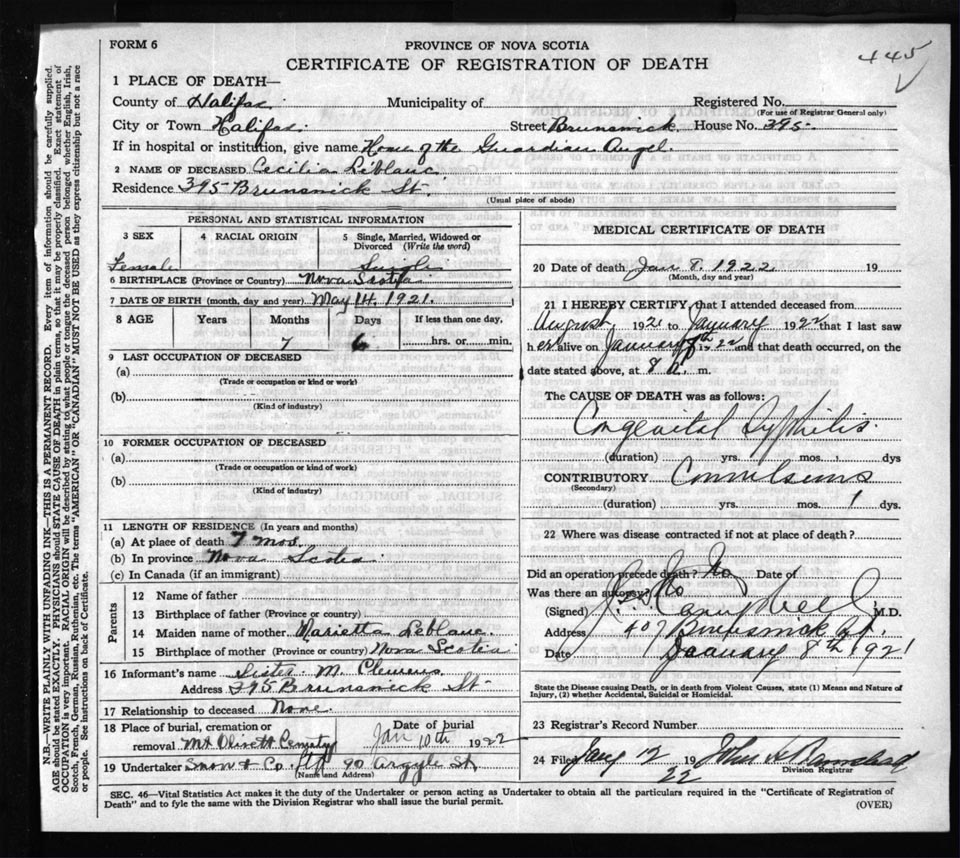 FORM 6
PROVINCE OF NOVA SCOTIA
CERTIFICATE OF REGISTRATION OF DEATH
445
1 PLACE OF DEATH—
County of Halifax Municipality of Registered No.
(For use of Registrar General only)
City or Town Halifax Street Brunswick House No. 395
If in hospital or institution, give name Home of the Guardian Angel.
2 NAME OF DECEASED Cecilia Leblanc
Residence 395 Brunswick St.
(Usual place of abode)
PERSONAL AND STATISTICAL INFORMATION
3 SEX 4 RACIAL ORIGIN 5 Single, Married, Widowed or Divorced (Write the word)
Female Single
6 BIRTHPLACE (Province or Country) Nova Scotia
7 DATE OF BIRTH (month, day and year) May 14, 1921.
8 AGE Years Months Days If less than one day,
7 6 hrs. or min.
9 LAST OCCUPATION OF DECEASED
(a)
(Trade or occupation or kind or work)
(b)
(Kind of industry)
10 FORMER OCCUPATION OF DECEASED
(a)
(Trade or occupation or kind or work)
(b)
(Kind of industry)
11 LENGTH OF RESIDENCE (In years and months)
(a) At place of death 7 mos.
(b) In province Nova Scotia
(c) In Canada (if an immigrant)
Parents
12 Name of father
13 Birthplace of father (Province or country)
14 Maiden name of mother Marietta Leblanc.
15 Birthplace of mother (Province or country) Nova Scotia
16 Informant's name Sister M. Clemens
Address 395 Brunswick St
17 Relationship to deceased None.
18 Place of burial, cremation or Date of burial
removal Mt Olivet Cemetery Jan 10th 1922
19 Undertaker Snow & Co. Ltd 90 Argyle St,
(Name and Address)
MEDICAL CERTIFICATE OF DEATH
20 Date of death Jan 8. 1922 19
(Month, day and year)
21 I HEREBY CERTIFY, that I attended deceased from
August 1921 to January 1922 that I last saw
her alive on January 7th 1922 and that death occurred, on the
date stated above, at 8 A. m.
The CAUSE OF DEATH was as follows:
Congenital Syphilis.
(duration) yrs. mos. dys.
CONTRIBUTORY Convulsions
(Secondary)
(duration) yrs. mos. 1 dys.
22 Where was disease contracted if not at place of death?
Did an operation precede death? No Date of
Was there an autopsy? No
(Signed) Campbell M.D.
Address 407 Brunswick St.
Date January 8th 1921
State the Disease causing Death, or in death from Violent Causes, state (1) Means and Nature of
Injury, (2) whether Accidental, Suicidal or Homicidal.
23 Registrar's Record Number
24 Filed Jany 12 19 22 John
Division Registrar
SEC. 46—Vital Statistics Act makes it the duty of the Undertaker or person acting as Undertaker to obtain all the particulars required in the "Certificate of Registration of
Death" and to fyle the same with the Division Registrar who shall issue the burial permit.
(OVER)
N.B.—WRITE PLAINLY WITH UNFADING INK—THIS IS A PERMANENT RECORD. Every item of information should be carefully supplied.
AGE should be stated EXACTLY. PHYSICIANS should STATE CAUSE OF DEATH in plain terms, so that it may be properly classified. Exact statement of
OCCUPATION is very important. RACIAL ORIGIN will be described by stating to what people or tongue the deceased person belonged whether English, Irish,
Scotch, French, German, Russian, Ruthenian, etc. The terms "AMERICAN" OR "CANADIAN" MUST NOT BE USED as they express citizenship but not a race
or people. See instructions on back of Certificate.